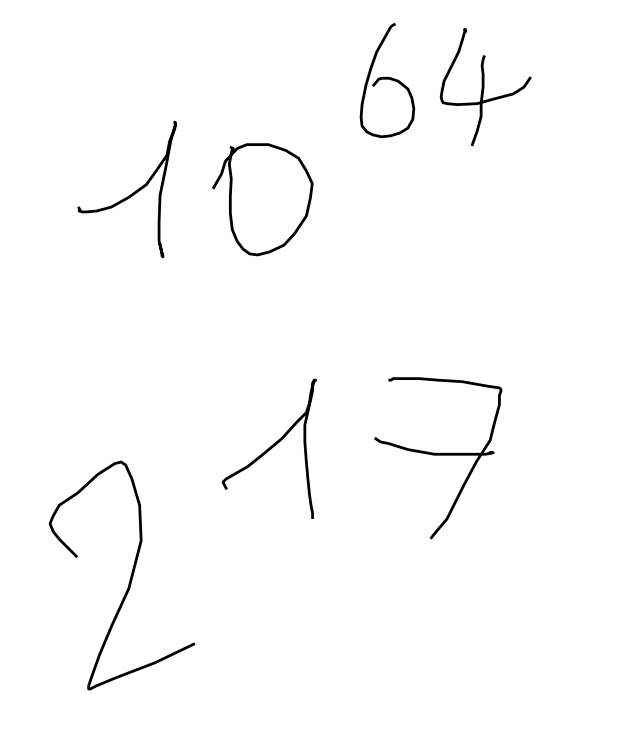 10⁶⁴
2¹⁷